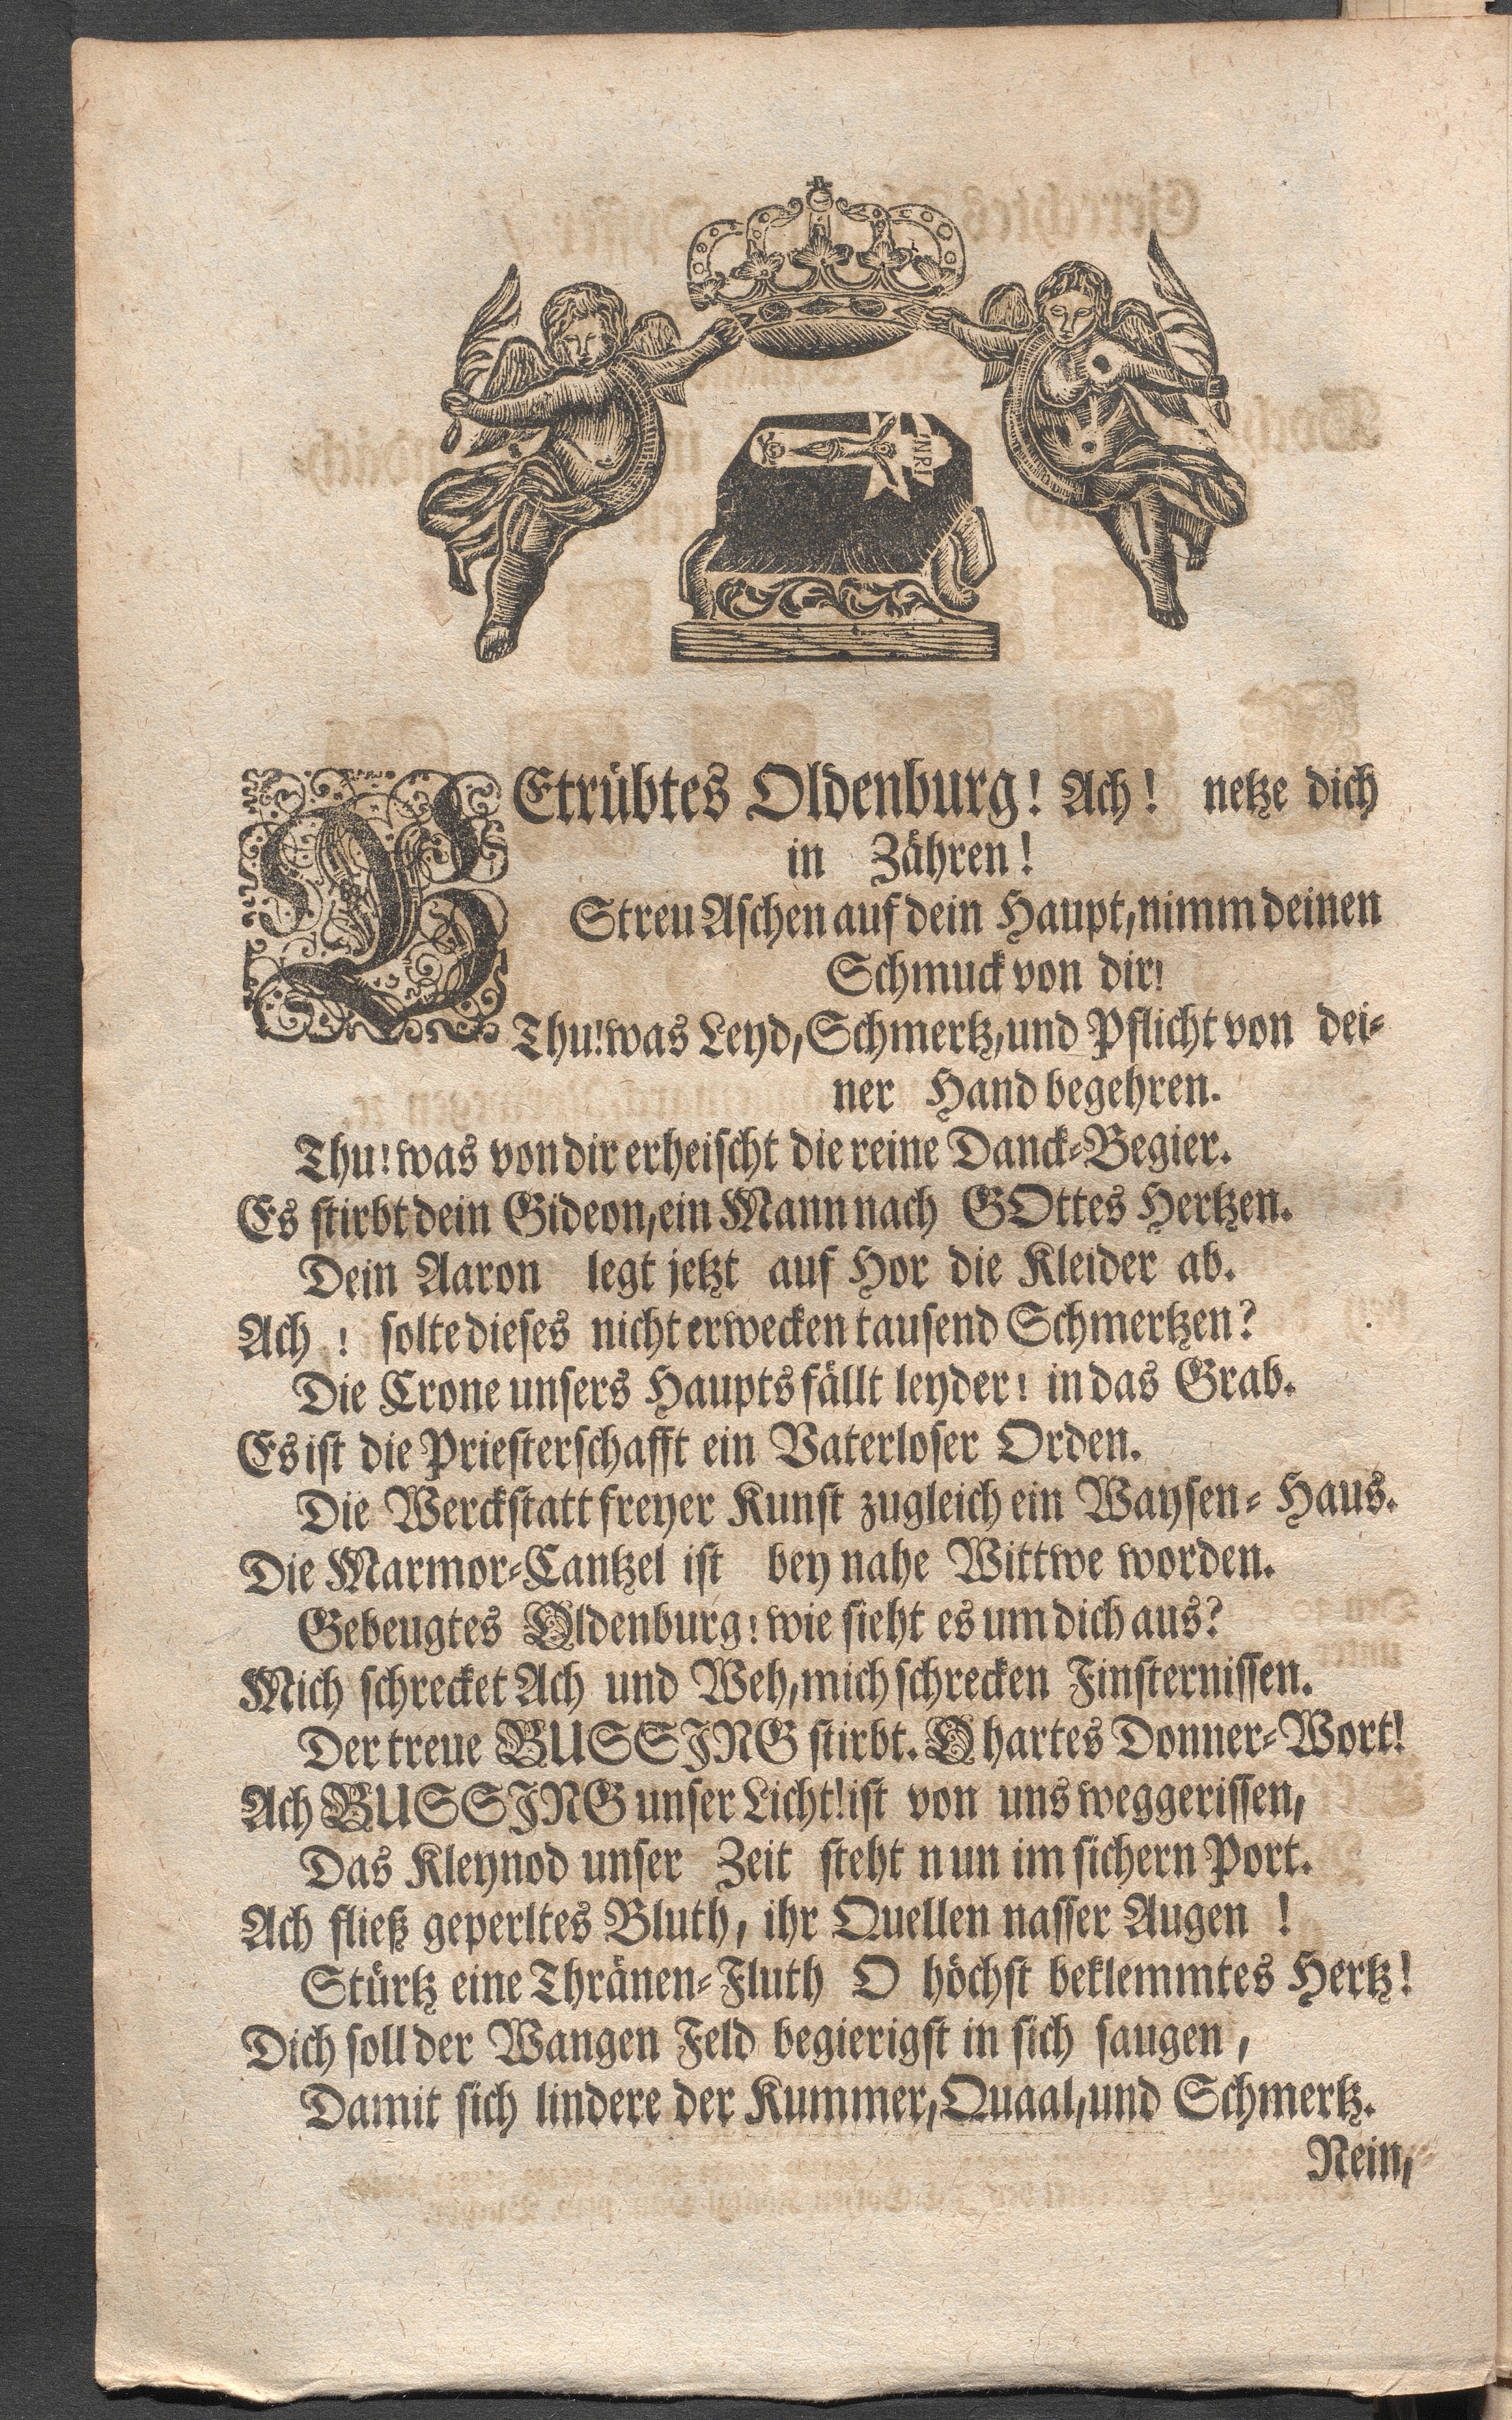 INRI
BEtrübtes Oldenburg! Ach! netze dich
in Zähren!
Streu Aschen auf dein Haupt, nimm deinen
Schmuck von dir!
Thu! was Leyd, Schmertz, und Pflicht von dei-
ner Hand begehren.
Thu! was von dir erheischt die reine Danck-Begier.
Es stirbt dein Gideon, ein Mann nach GOttes Hertzen.
Dein Aaron legt jetzt auf Hor die Kleider ab.
Ach ! solte dieses nicht erwecken tausend Schmertzen?
Die Crone unsers Haupts fällt leyder! in das Grab.
Es ist die Priesterschafft ein Vaterloser Orden.
Die Werckstatt freyer Kunst zugleich ein Waysen-Haus.
Die Marmor-Cantzel ist bey nahe Wittwe worden.
Gebeugtes Oldenburg! wie sieht es um dich aus?
Mich schrecket Ach und Weh, mich schrecken Finsternissen.
Der treue BUSSJNG stirbt. O hartes Donner-Wort!
Ach BUSSJNG unser Licht! ist von uns weggerissen,
Das Kleynod unser Zeit steht nun im sichern Port.
Ach fließ geperltes Bluth, ihr Quellen nasser Augen !
Stürtz eine Thränen-Fluth O höchst beklemmtes Hertz!
Dich soll der Wangen Feld begierigst in sich saugen,
Damit sich lindere der Kummer, Quaal, und Schmertz.
Nein,